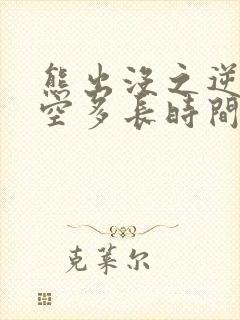 熊出没之逆
空多長時間
克莱尔